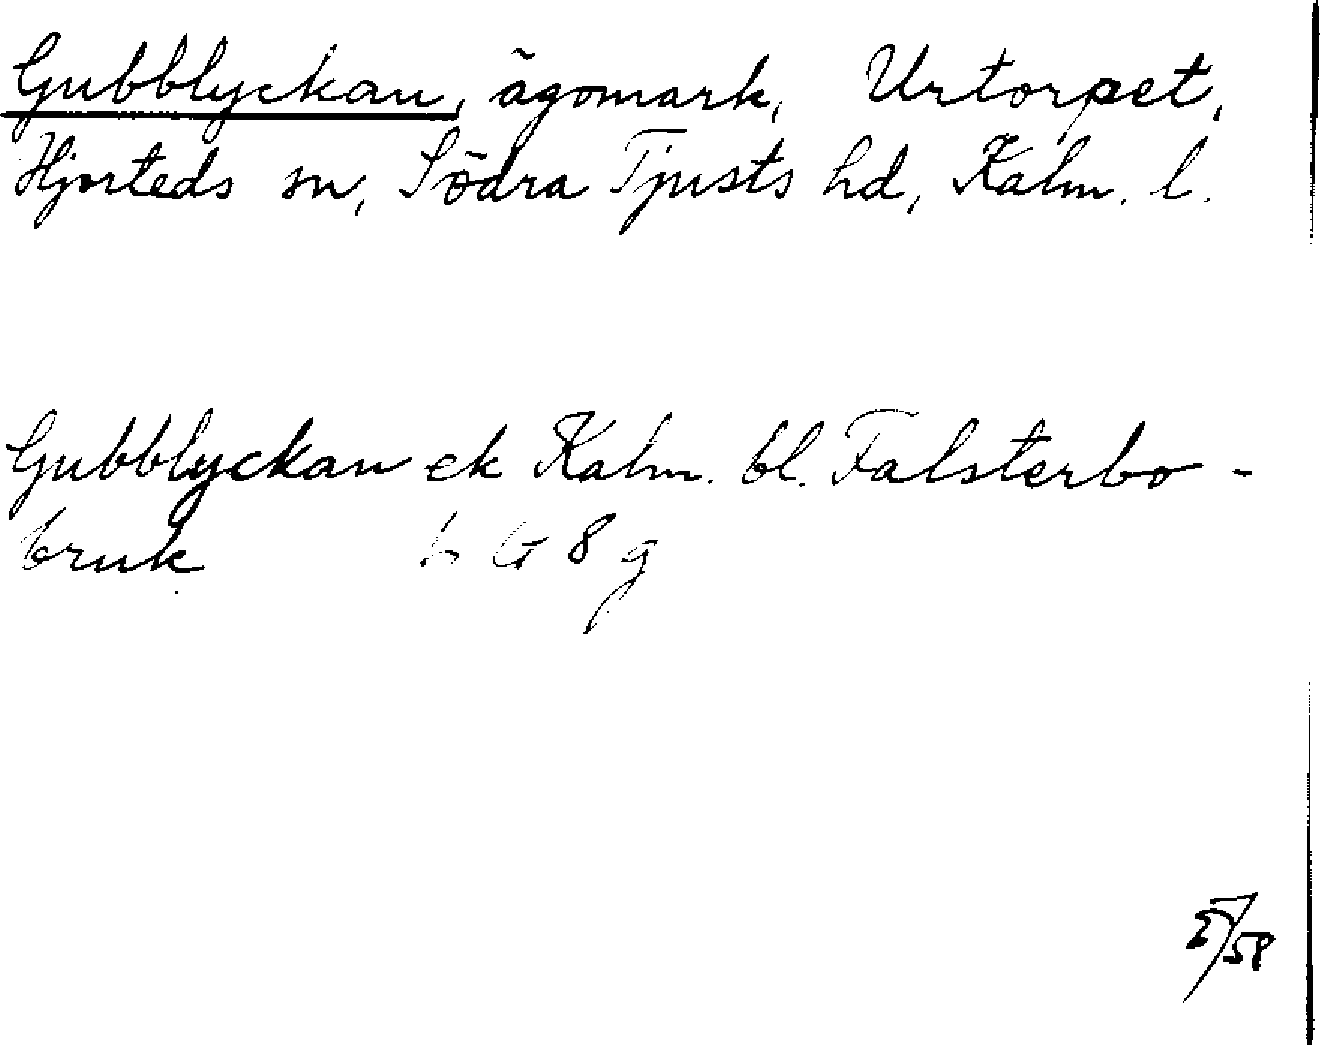 Gubblyckan, ägomark, Urtorpet,
Hjorteds sn, Södra Tjusts hd, Kalm. l.
Gubblyckan ek Kalm. bl. Falsterbo-
bruk 6 G 8 g
58